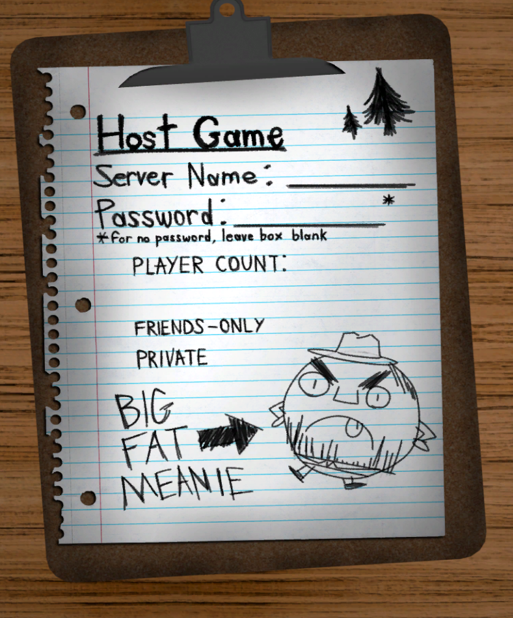 Host Game
Server Name: ______
Password: ______*
*For no password, leave box blank
PLAYER COUNT:
FRIENDS-ONLY
PRIVATE
BIG
FAT
MEANIE